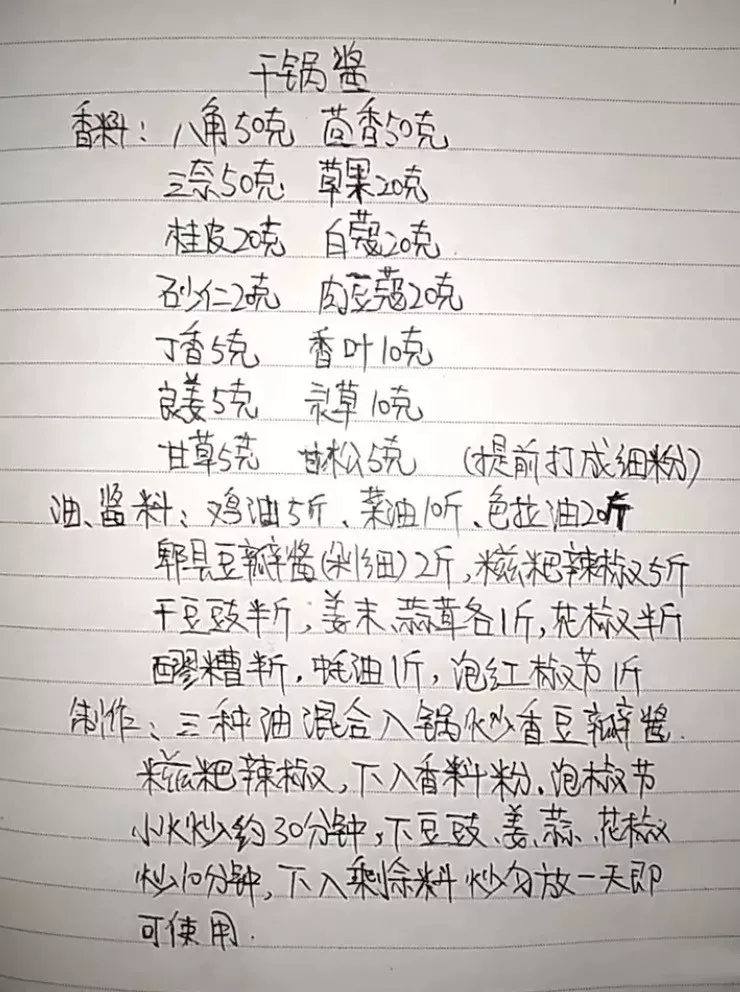 干锅酱
香料：八角50克 茴香50克
三奈50克 草果20克
桂皮20克 白蔻20克
砂仁20克 肉豆蔻20克
丁香5克 香叶10克
良姜5克 灵草10克
甘草5克 甘松5克 (提前打成细粉)
油、酱料：鸡油5斤、菜油10斤、色拉油20斤
郫县豆瓣酱(剁细)2斤，糍粑辣椒5斤
干豆豉半斤，姜末、蒜茸各1斤，花椒半斤
醪糟半斤，蚝油1斤，泡红椒节1斤
制作：三种油混合入锅炒香豆瓣酱.
糍粑辣椒，下入香料粉、泡椒节
小火炒约30分钟，下豆豉、姜、蒜、花椒
炒10分钟，下入剩余料炒匀放一天即
可使用.